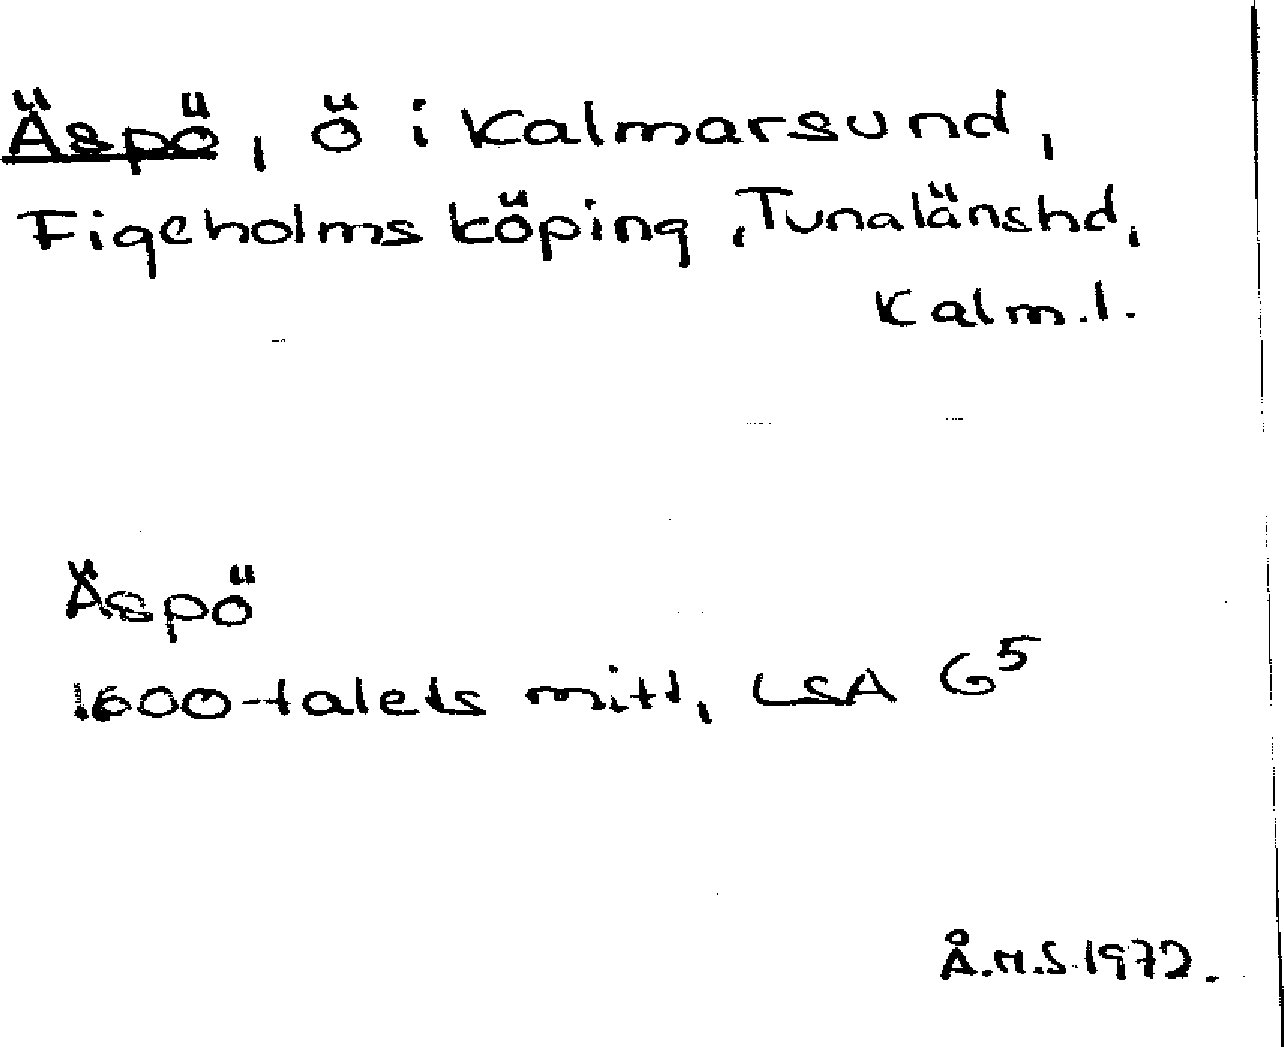 Äspö, ö i Kalmarsund,
Figeholms köping, Tunalänshd,
Kalm.l.
Äspö
1600-talets mitt, LSA G⁵
Å.H.S. 1972.